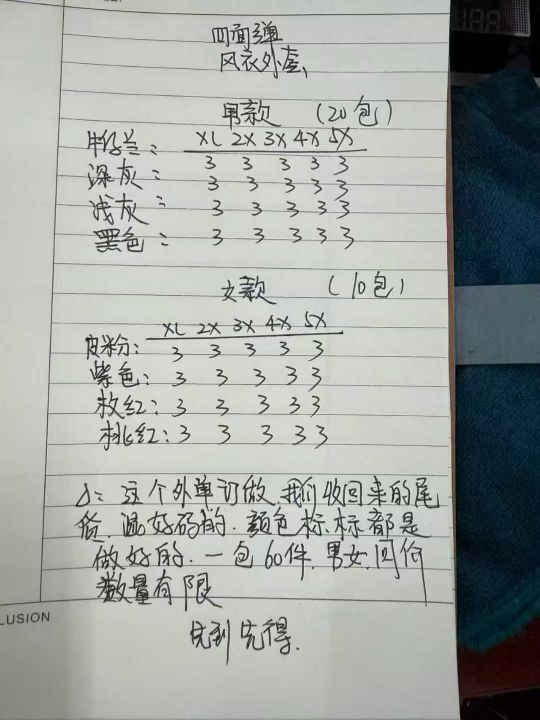 四面弹
风衣外套
男款 (20包)
XL 2X 3X 4X 5X
牛仔兰: 3 3 3 3 3
深灰: 3 3 3 3 3
浅灰: 3 3 3 3 3
黑色: 3 3 3 3 3
女款 (10包)
XL 2X 3X 4X 5X
皮粉: 3 3 3 3 3
紫色: 3 3 3 3 3
玫红: 3 3 3 3 3
桃红: 3 3 3 3 3
这个外单订做,我们收回来的尾
货,混好码的.颜色标.标都是
做好的.一包60件,男女,同价
数量有限
LUSION
先到先得.